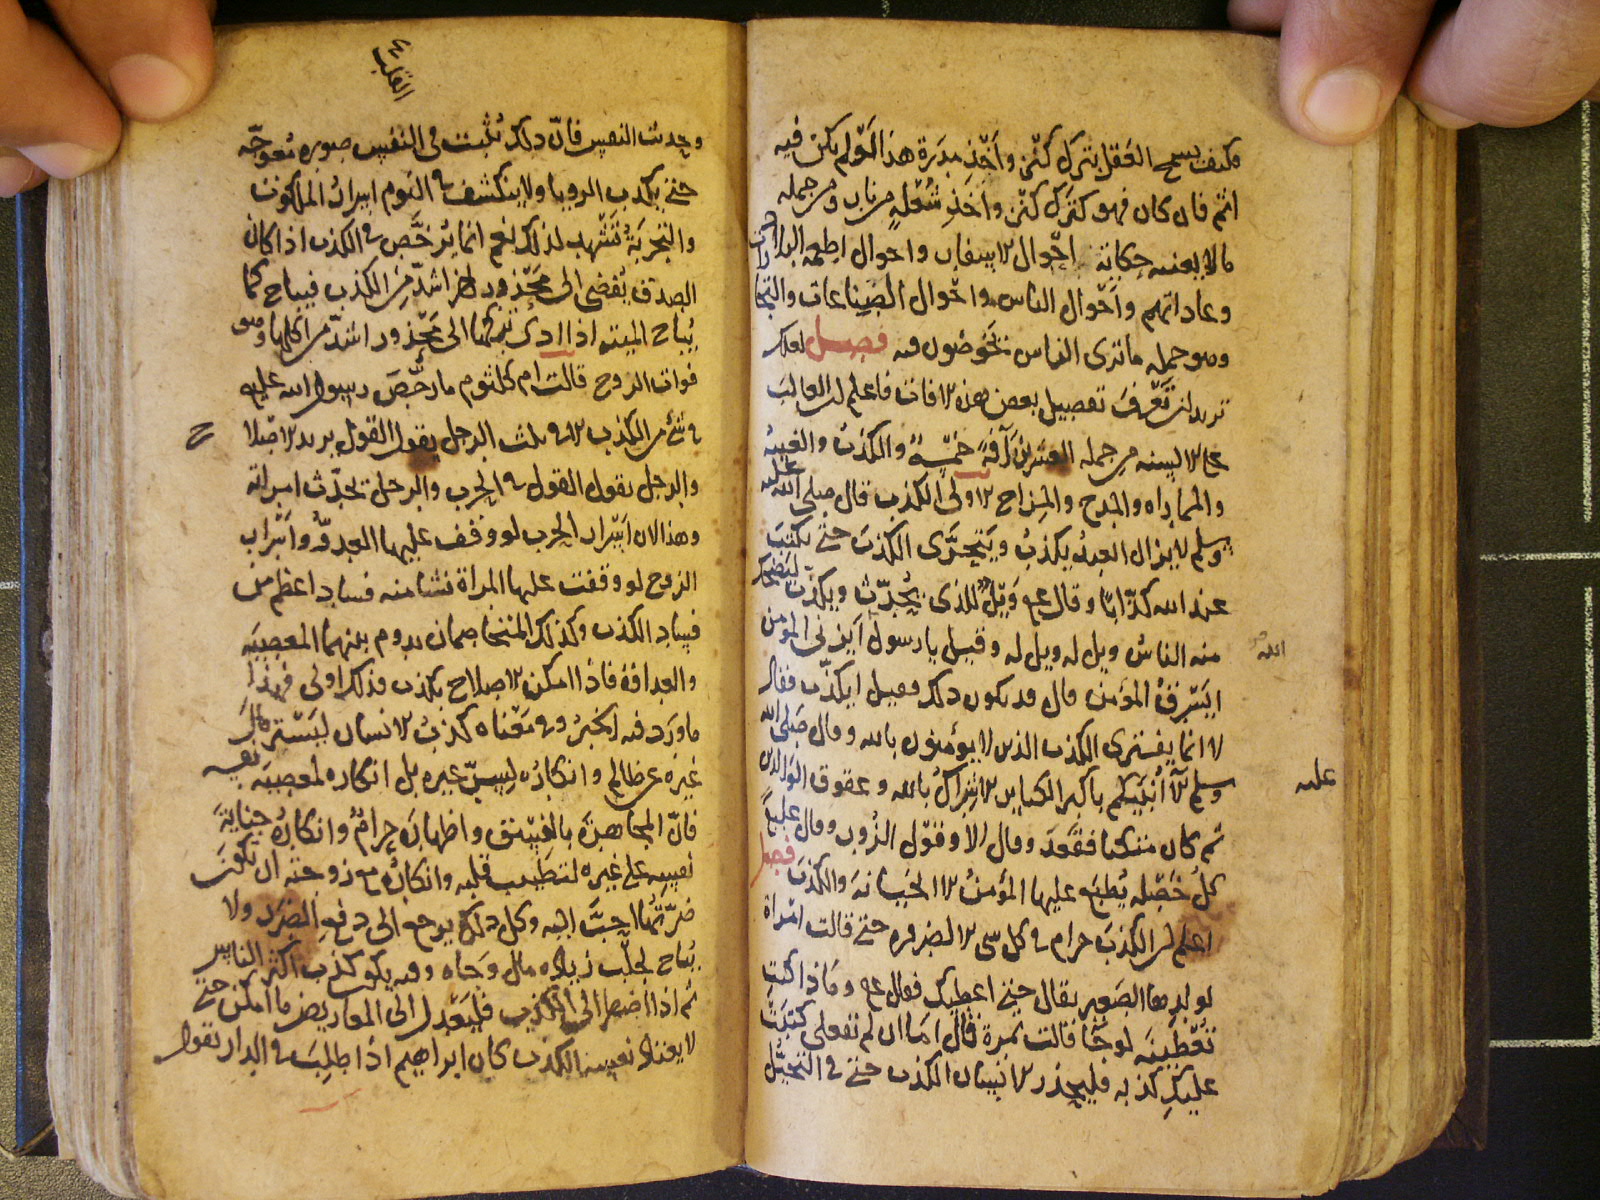 فكيف يسمح العقل بترك كنز وأخذ مدرة هذا لو لم يكن فيه
اثم فان كان فهو كترك كنز واخذ شعلة من نار ومن جمله
ما لا يعنيه حكاية احوال الاسفار واحوال اطعمه البلاد
وعاداتهم وأحوال الناس واحوال الصناعات والتجارات
وهو جمله ما ترى الناس يخوضون فيه فصل لعلك
تريد ان تعرف تفصيل بعض هذه الافات فاعلم ان الغالب
على الالسنه من جمله العشرين آفة خمسة الكذب والغيبة
والمماراه والمدح والمزاح الاولى الكذب قال صلى الله عليه
وسلم لا يزال العبد يكذب ويتحرى الكذب حتى يكتب
عند الله كذابا وقال عم ويل للذى يحدث ويكذب ليضحك
منه الناس ويل له ويل له وقيل يا رسول الله ايزنى المؤمن
ايسرق المؤمن قال قد يكون ذلك فقيل ايكذب فقال
لا انما يفترى الكذب الذين لا يؤمنون بالله وقال صلى الله
عليه وسلم الا أنبئكم باكبر الكباير الاشراك بالله وعقوق الوالدين
ثم كان متكئا فقعد وقال الا وقول الزور وقال عليه
كل خصله يطبع عليها المؤمن الا الخيانة والكذب فصل
اعلم ان الكذب حرام فى كل شى الا لضروره حتى قالت امراة
لولدها الصغير تعال حتى اعطيك فقال عم وماذا كنت
تعطينه لو جا قالت تمرة قال اما ان لم تفعلى كتبت
عليك كذبه فليحذر الانسان الكذب حتى فى التخيل
القلب
وحديث النفس فان ذلك تثبت فى النفس صوره معوجه
حتى يكذب الرويا ولا ينكشف فى النوم اسرار الملكوت
والتجربة تشهد لذلك نعم انما يرخص فى الكذب اذا كان
الصدق يفضى الى محذور اخر اشد من الكذب فيباح كما
يباح الميته اذا ادى تركها الى محذور اشد من اكلها وهو
فوات الروح قالت ام كلثوم ما رخص رسول الله عليه
فى شئ من الكذب الا فى ثلث الرجل يقول القول يريد الاصلاح
والرجل يقول القول فى الحرب والرجل يحدث امراته
وهذا لان اسرار الحرب لو وقف عليها العدو وأسرار
الزوج لو وقفت عليها المراة نشا منه فساد اعظم من
فساد الكذب وكذلك المتخاصمان يدوم بينهما المعصيه
والعداوة فاذا امكن الاصلاح بكذب فذلك اولى فهذا
ما ورد فيه الخبر وفى معناه كذب الانسان ليستر مال
غيره عن ظالم وانكاره لسر غيره بل انكاره لمعصيه نفسه
فان المجاهرة بالفسق واظهاره حرام وانكاره جناية
نفسه على غيره لتطيب قلبه وانكاره مع زوجته ان تكون
ضرتها احب اليه وكل ذلك يرجع الى دفع الضرر ولا
يباح لجلب زيادة مال وجاه وفيه يكون كذب اكثر الناس
ثم اذا اضطر الى الكذب فليعدل الى المعاريض ما امكن حتى
لا يعتاد نفسه الكذب كان ابراهيم اذا طلب فى الدار تقول